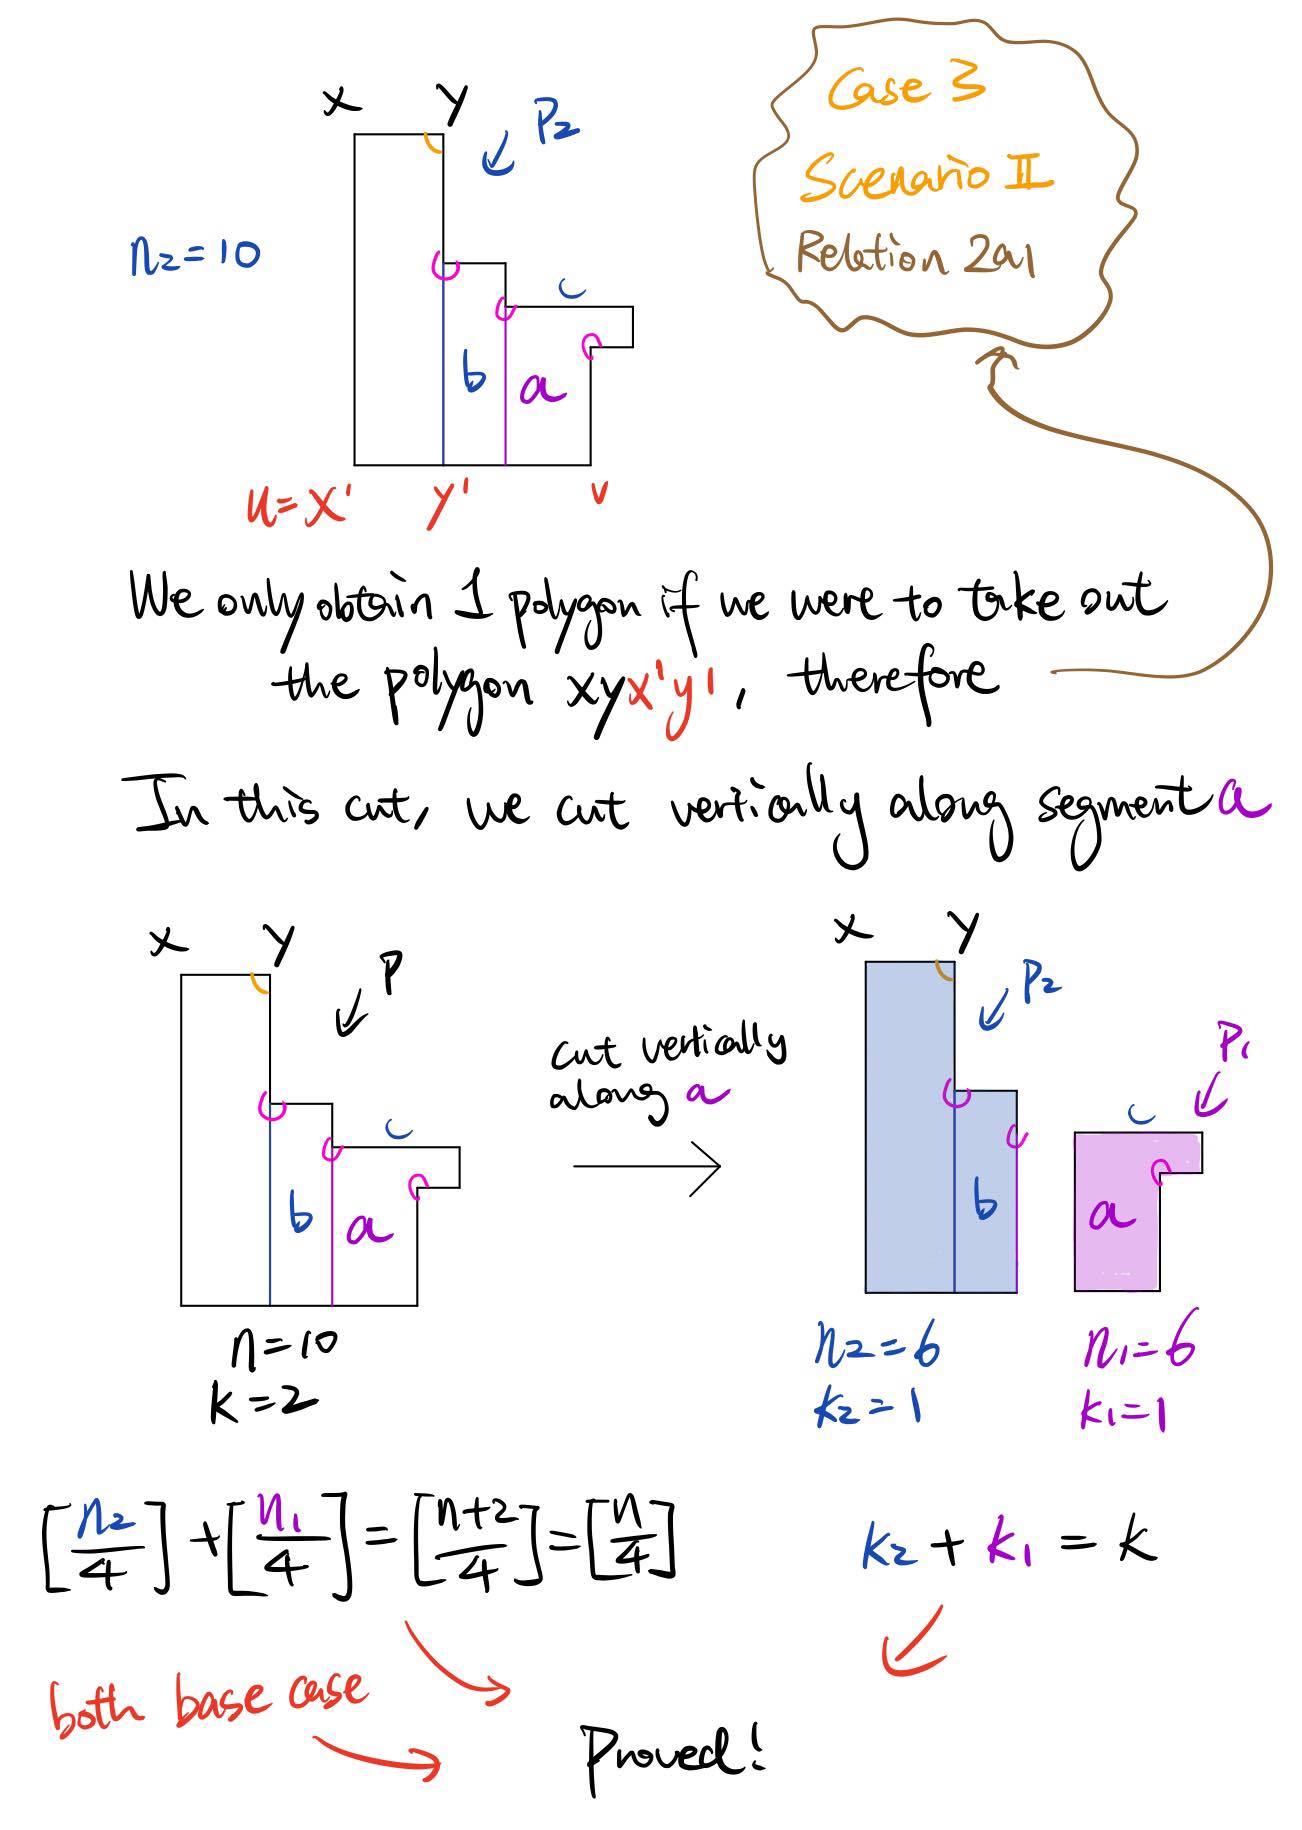 Case 3
Scenario II
Relation 2a1
x y
P2
n2=10
b a
u=x' y' v
We only obtain 1 polygon if we were to take out
the polygon xyx'y', therefore
In this cut, we cut vertically along segment a
x y
P
b a
n=10
k=2
cut vertically
along a
x y
P2
P1
b
a
n2=6
k2=1
n1=6
k1=1
[n2/4]+[n1/4]=[n+2/4]=[n/4]
k2+k1=k
both base case
Proved!